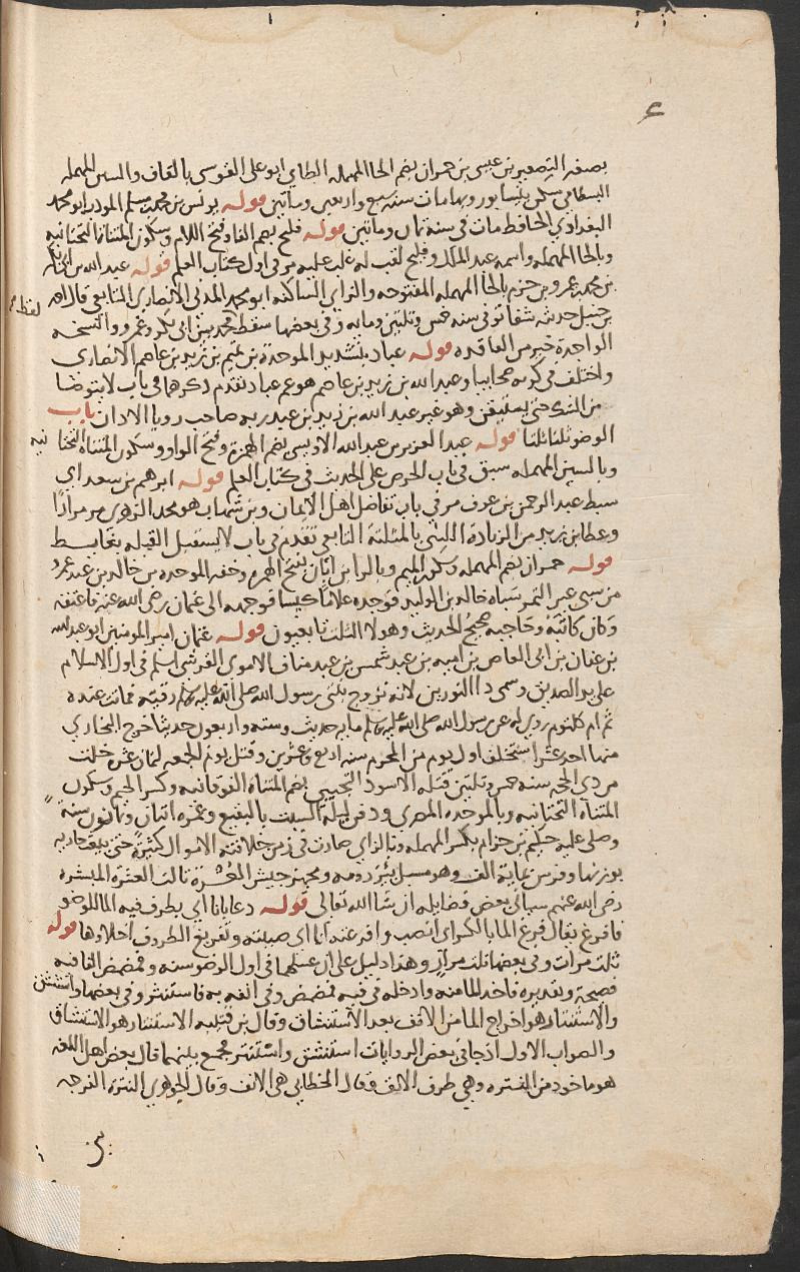 ع
بصغة التصغير بن عيسى بن حمران بضم الحا المهملة الطاي ابو على القومسى بالقاف والسين المهملة
البسطامى سكن نيسابور وبها مات سنة سبع واربعين وماتين قوله يونس بن محمد بن مسلم المودب ابو محمد
البغدادي الحافظ مات فى سنة ثمان وماتين قوله فليح بضم الفا وفتح اللام وسكون المثناة التحتانية
وبالحا المهملة واسمه عبد الملك وفليح لقب له غلب عليه مر فى اول كتاب العلم قوله عبد الله بن ابى بكر
بن محمد بن عمرو بن حزم بالحا المهملة المفتوحة والزاي الساكنة ابو محمد المدنى الانصاري التابعى قال احمد
بن حنبل حديثه شفا توفى سنة خمس وثلثين وماية وفى بعضها سقط محمد بين ابى بكر وعمرو والنسخة لفظ
الواحدة خير من الفاقدة قوله عباد بتشديد الموحدة بن تميم بن زيد بن عاصم الانصاري
واختلف فى كونه صحابيا وعبد الله بن زيد بن عاصم هو عم عباد تقدم ذكرهما فى باب لا يتوضا
من الشك حتى يستيقن وهو غير عبد الله بن زيد بن عبد ربه صاحب رويا الاذان باب
الوضو ثلثا ثلثا قوله عبد العزيز بن عبد الله الاويسى بضم الهمزة وفتح الواو وسكون المثناة التحتانية
وبالسين المهملة سبق فى باب الحرص على الحديث فى كتاب العلم قوله ابرهيم بن سعد اي
سبط عبد الرحمن بن عوف مر فى باب تفاضل اهل الايمان وبن شهاب هو محمد الزهري مر مرارًا
وعطا بن يزيد من الزيادة الليثى بالمثلثة التابعى تقدم فى باب لا يستقبل القبلة بغايط
قوله حمران بضم المهملة وسكون الميم وبالرا بن ابان بفتح الهمزة وخفة الموحدة بن خالد بن عبد عمرو
من سبى عين التمر سباه خالد بن الوليد فوجده غلامًا كيسا فوجهه الى عثمان رضى الله عنه فاعتقه
وكان كاتبه وحاجبه صحيح الحديث وهولا الثلث تابعيون قوله عثمان امير المومنين ابو عبد الله
بن عفان بن ابى العاص بن امية بن عبد شمس بن عبد مناف الاموي القرشى اسلم فى اول الاسلام
على يد الصديق وسمى ذا النورين لانه تزوج بنتى رسول الله صلى الله عليه وسلم رقية فماتت عنده
ثم ام كلثوم روي له عن رسول الله صلى الله عليه وسلم ماية حديث وستة واربعون حديثا خرج البخاري
منها احد عشر استخلف اول يوم من المحرم سنة اربع وعشرين وقتل يوم الجمعة لثمان عشرة خلت
من ذي الحجة سنة خمس وثلثين قتله الاسود التجيبى بضم المثناة الفوقانية وكسر الجيم وسكون
المثناة التحتانية وبالموحدة المصري ودفن ليلة السبت بالبقيع وعمره اثنان وثمانون سنة
وصلى عليه حكيم بن حزام بكسر المهملة وبالزاي صارت فى زمن خلافته الاموال كثيرة حتى بيعت جارية
بوزنها وفرس بماية الف وهو مسبل بئر رومة ومجهز جيش العُسْرَة ثالث العشرة المبشرة
رضى الله عنهم سياتى بعض فضايله ان شا الله تعالى قوله دعا بانا اي بظرف فيه الما للوضو
فافرغ يقال فرغ الما بالكسر اي انصب وافرغته انا اي صببته وتفريغ الظروف اخلاوها قوله
ثلث مرات وفى بعضها ثلث مرار وهذا دليل على ان غسلهما فى اول الوضو سنة وفمضمض الفا فيه
فصيحة وتقديره فاخذ الما منه وادخله فى فيه فمضمض وفى انفه به فاستنثر وفى بعضها واستنشق
والاستنثار هو اخراج الما من الانف بعد الاستنشاق وقال بن قتيبة الاستنثار هو الاستنشاق
والصواب الاول اذ جا فى بعض الروايات استنشق واستنثر فجمع بينهما قال بعض اهل اللغة
هو ماخوذ من النثرة وهى طرف الانف وقال الخطابى هى الانف وقال الجوهري النثرة الفرجة